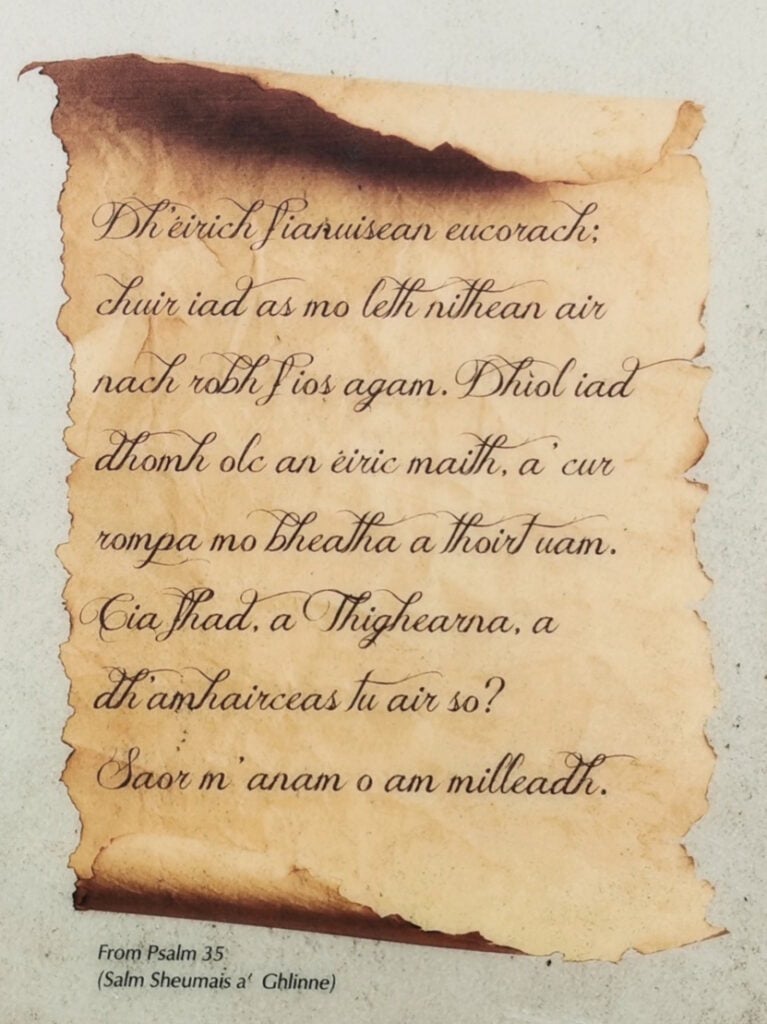 Dh'éirich fianuisean eucorach;
chuir iad as mo leth nithean air
nach robh fios agam. Dhìol iad
dhomh olc an éiric maith, a' cur
rompa mo bheatha a thoirt uam.
Cia fhad, a Thighearna, a
dh'amhairceas tu air so?
Saor m' anam o am milleadh.
From Psalm 35
(Salm Sheumais a' Ghlinne)